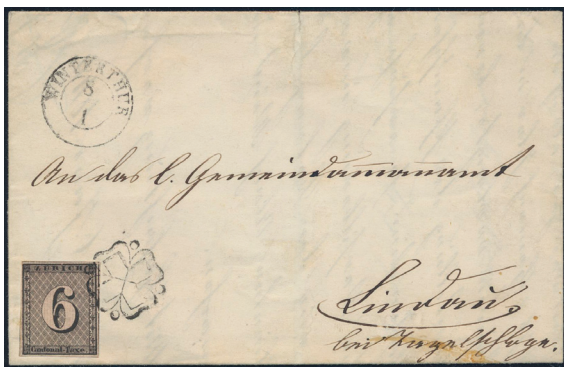 WINTERTHUR
8
1
An das l. Gemeindamannamt
ZÜRICH
6
Cantonal-Taxe.
Lindau,
bei Tagelschwge.